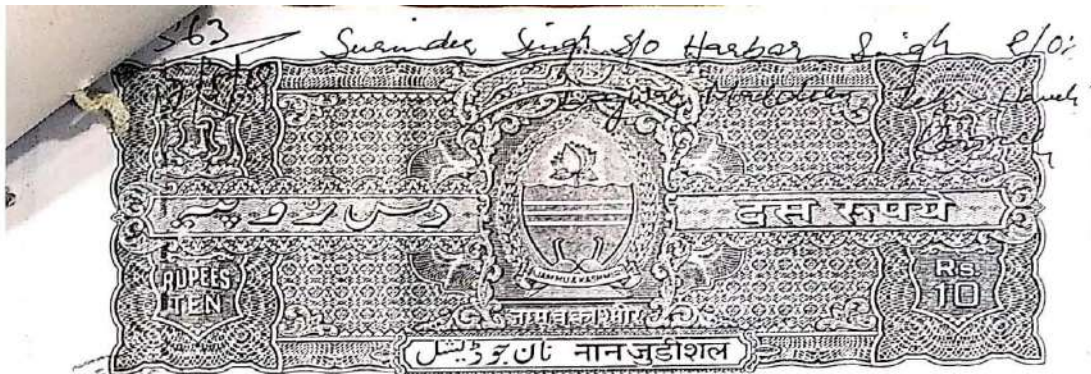 563 Surinder Singh S/o Harbar Singh R/o:
دس روپیہ दस रूपये
RUPEES TEN
Rs. 10
JAMMU & KASHMIR
जम्मू व कश्मीर
نان جوڈیشل नान जुडीशल